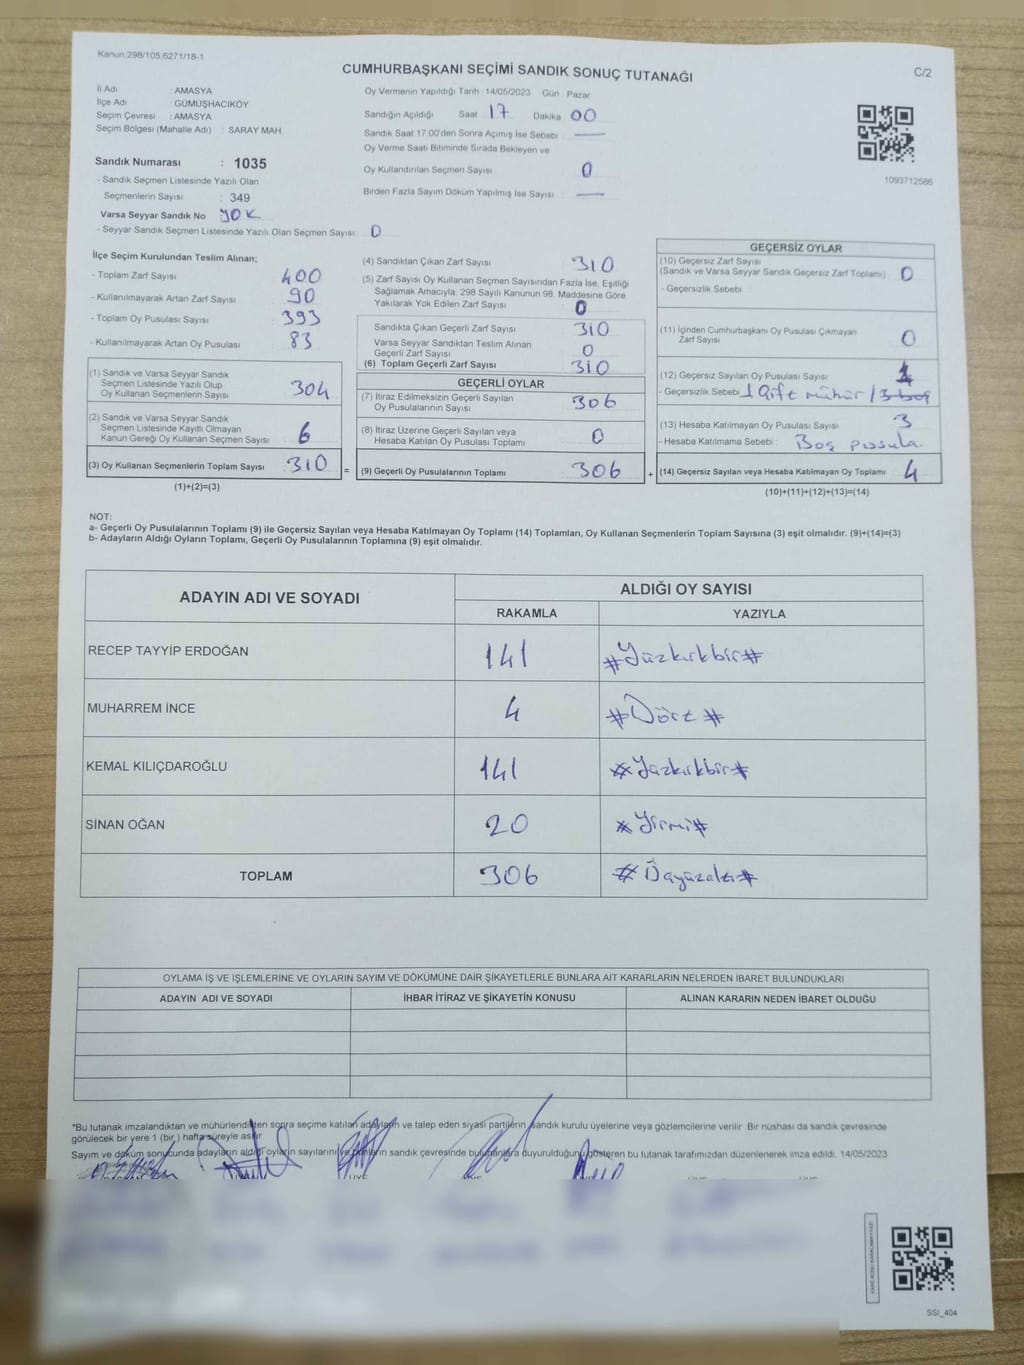 Kanun:298/105,6271/18-1
C/2
CUMHURBAŞKANI SEÇİMİ SANDIK SONUÇ TUTANAĞI
İl Adı : AMASYA
İlçe Adı : GÜMÜŞHACIKÖY
Seçim Çevresi : AMASYA
Seçim Bölgesi (Mahalle Adı) : SARAY MAH.
Sandık Numarası : 1035
- Sandık Seçmen Listesinde Yazılı Olan
Seçmenlerin Sayısı : 349
Varsa Seyyar Sandık No YOK
- Seyyar Sandık Seçmen Listesinde Yazılı Olan Seçmen Sayısı : 0
Oy Vermenin Yapıldığı Tarih :14/05/2023 Gün : Pazar
Sandığın Açıldığı Saat 17 Dakika 00
Sandık Saat 17:00'den Sonra Açımış İse Sebebi :
Oy Verme Saati Bitiminde Sırada Bekleyen ve
Oy Kullandırılan Seçmen Sayısı : 0
Birden Fazla Sayım Döküm Yapılmış İse Sayısı :
1093712586
İlçe Seçim Kurulundan Teslim Alınan;
- Toplam Zarf Sayısı : 400
- Kullanılmayarak Artan Zarf Sayısı : 90
- Toplam Oy Pusulası Sayısı : 393
- Kullanılmayarak Artan Oy Pusulası : 83
(1) Sandık ve Varsa Seyyar Sandık
Seçmen Listesinde Yazılı Olup
Oy Kullanan Seçmenlerin Sayısı : 304
(2) Sandık ve Varsa Seyyar Sandık
Seçmen Listesinde Kayıtlı Olmayan
Kanun Gereği Oy Kullanan Seçmen Sayısı : 6
(3) Oy Kullanan Seçmenlerin Toplam Sayısı : 310 =
(1)+(2)=(3)
(4) Sandıktan Çıkan Zarf Sayısı : 310
(5) Zarf Sayısı Oy Kullanan Seçmen Sayısından Fazla İse, Eşitliği
Sağlamak Amacıyla; 298 Sayılı Kanunun 98. Maddesine Göre
Yakılarak Yok Edilen Zarf Sayısı : 0
Sandıkta Çıkan Geçerli Zarf Sayısı : 310
Varsa Seyyar Sandıktan Teslim Alınan
Geçerli Zarf Sayısı : 0
(6) Toplam Geçerli Zarf Sayısı : 310
GEÇERLİ OYLAR
(7) İtiraz Edilmeksizin Geçerli Sayılan
Oy Pusulalarının Sayısı : 306
(8) İtiraz Üzerine Geçerli Sayılan veya
Hesaba Katılan Oy Pusulası Toplamı : 0
(9) Geçerli Oy Pusulalarının Toplamı : 306 +
GEÇERSİZ OYLAR
(10) Geçersiz Zarf Sayısı
(Sandık ve Varsa Seyyar Sandık Geçersiz Zarf Toplamı) : 0
- Geçersizlik Sebebi :
(11) İçinden Cumhurbaşkanı Oy Pusulası Çıkmayan
Zarf Sayısı : 0
(12) Geçersiz Sayılan Oy Pusulası Sayısı : 1
- Geçersizlik Sebebi : 1 Çift mühür / 3 boş
(13) Hesaba Katılmayan Oy Pusulası Sayısı : 3
- Hesaba Katılmama Sebebi : Boş pusula
(14) Geçersiz Sayılan veya Hesaba Katılmayan Oy Toplamı : 4
(10)+(11)+(12)+(13)=(14)
NOT:
a- Geçerli Oy Pusulalarının Toplamı (9) ile Geçersiz Sayılan veya Hesaba Katılmayan Oy Toplamı (14) Toplamları, Oy Kullanan Seçmenlerin Toplam Sayısına (3) eşit olmalıdır. (9)+(14)=(3)
b- Adayların Aldığı Oyların Toplamı, Geçerli Oy Pusulalarının Toplamına (9) eşit olmalıdır.
ADAYIN ADI VE SOYADI
ALDIĞI OY SAYISI
RAKAMLA YAZIYLA
RECEP TAYYİP ERDOĞAN 141 #Yüzkırkbir#
MUHARREM İNCE 4 #Dört#
KEMAL KILIÇDAROĞLU 141 #Yüzkırkbir#
SİNAN OĞAN 20 #Yirmi#
TOPLAM 306 #Üçyüzaltı#
OYLAMA İŞ VE İŞLEMLERİNE VE OYLARIN SAYIM VE DÖKÜMÜNE DAİR ŞİKAYETLERLE BUNLARA AİT KARARLARIN NELERDEN İBARET BULUNDUKLARI
ADAYIN ADI VE SOYADI İHBAR İTİRAZ VE ŞİKAYETİN KONUSU ALINAN KARARIN NEDEN İBARET OLDUĞU
*Bu tutanak imzalandıktan ve mühürlendikten sonra seçime katılan adayların ve talep eden siyasi partilerin sandık kurulu üyelerine veya gözlemcilerine verilir. Bir nüshası da sandık çevresinde
görülecek bir yere 1 (bir ) hafta süreyle asılır.
Sayım ve döküm sonucunda adayların aldığı oyların sayılarını ve bunların sandık çevresinde bulunanlara duyurulduğunu gösteren bu tutanak tarafımızdan düzenlenerek imza edildi. 14/05/2023
SSİ_404